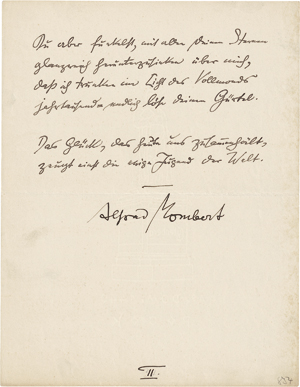 Du aber funkelst, mit allen Deinen Sternen
glanzreich herunterzusinken über mich,
daß ich trunken im Licht des Vollmonds
jahrtausende endlich löse deinen Gürtel.
Das Glück, das heute uns
zeugt einst die ewige Jugend der Welt.
Alfred Mombert
II.